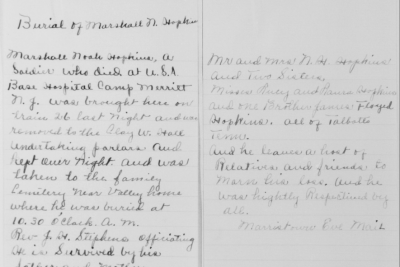 Burial of Marshall N. Hopkin
Marshall Noah Hopkins, A
Soldier who died at U.S.A
Base Hospital Camp Merritt
N.J. was brought here on
Train 26 East Night and was
removed to the Clay W. Hall
undertaking parlors and
Kept over Night and was
taken to the family
Cemetery Near Valley Home
where he was buried at
10.30 O'Clock A.M.
Rev. J. H. Stephens officiating
He is Survived by his
father and mother
Mr and Mrs N. H. Hopkins
And Two Sisters
Misses and Hopkins
and one Brother James Floyed
Hopkins. all of Talbotts
Tenn.
And he leaves a host of
Relatives and friends to
Morn his loss. And he
was hightly Respected by
all.
Morristown Eve Mail